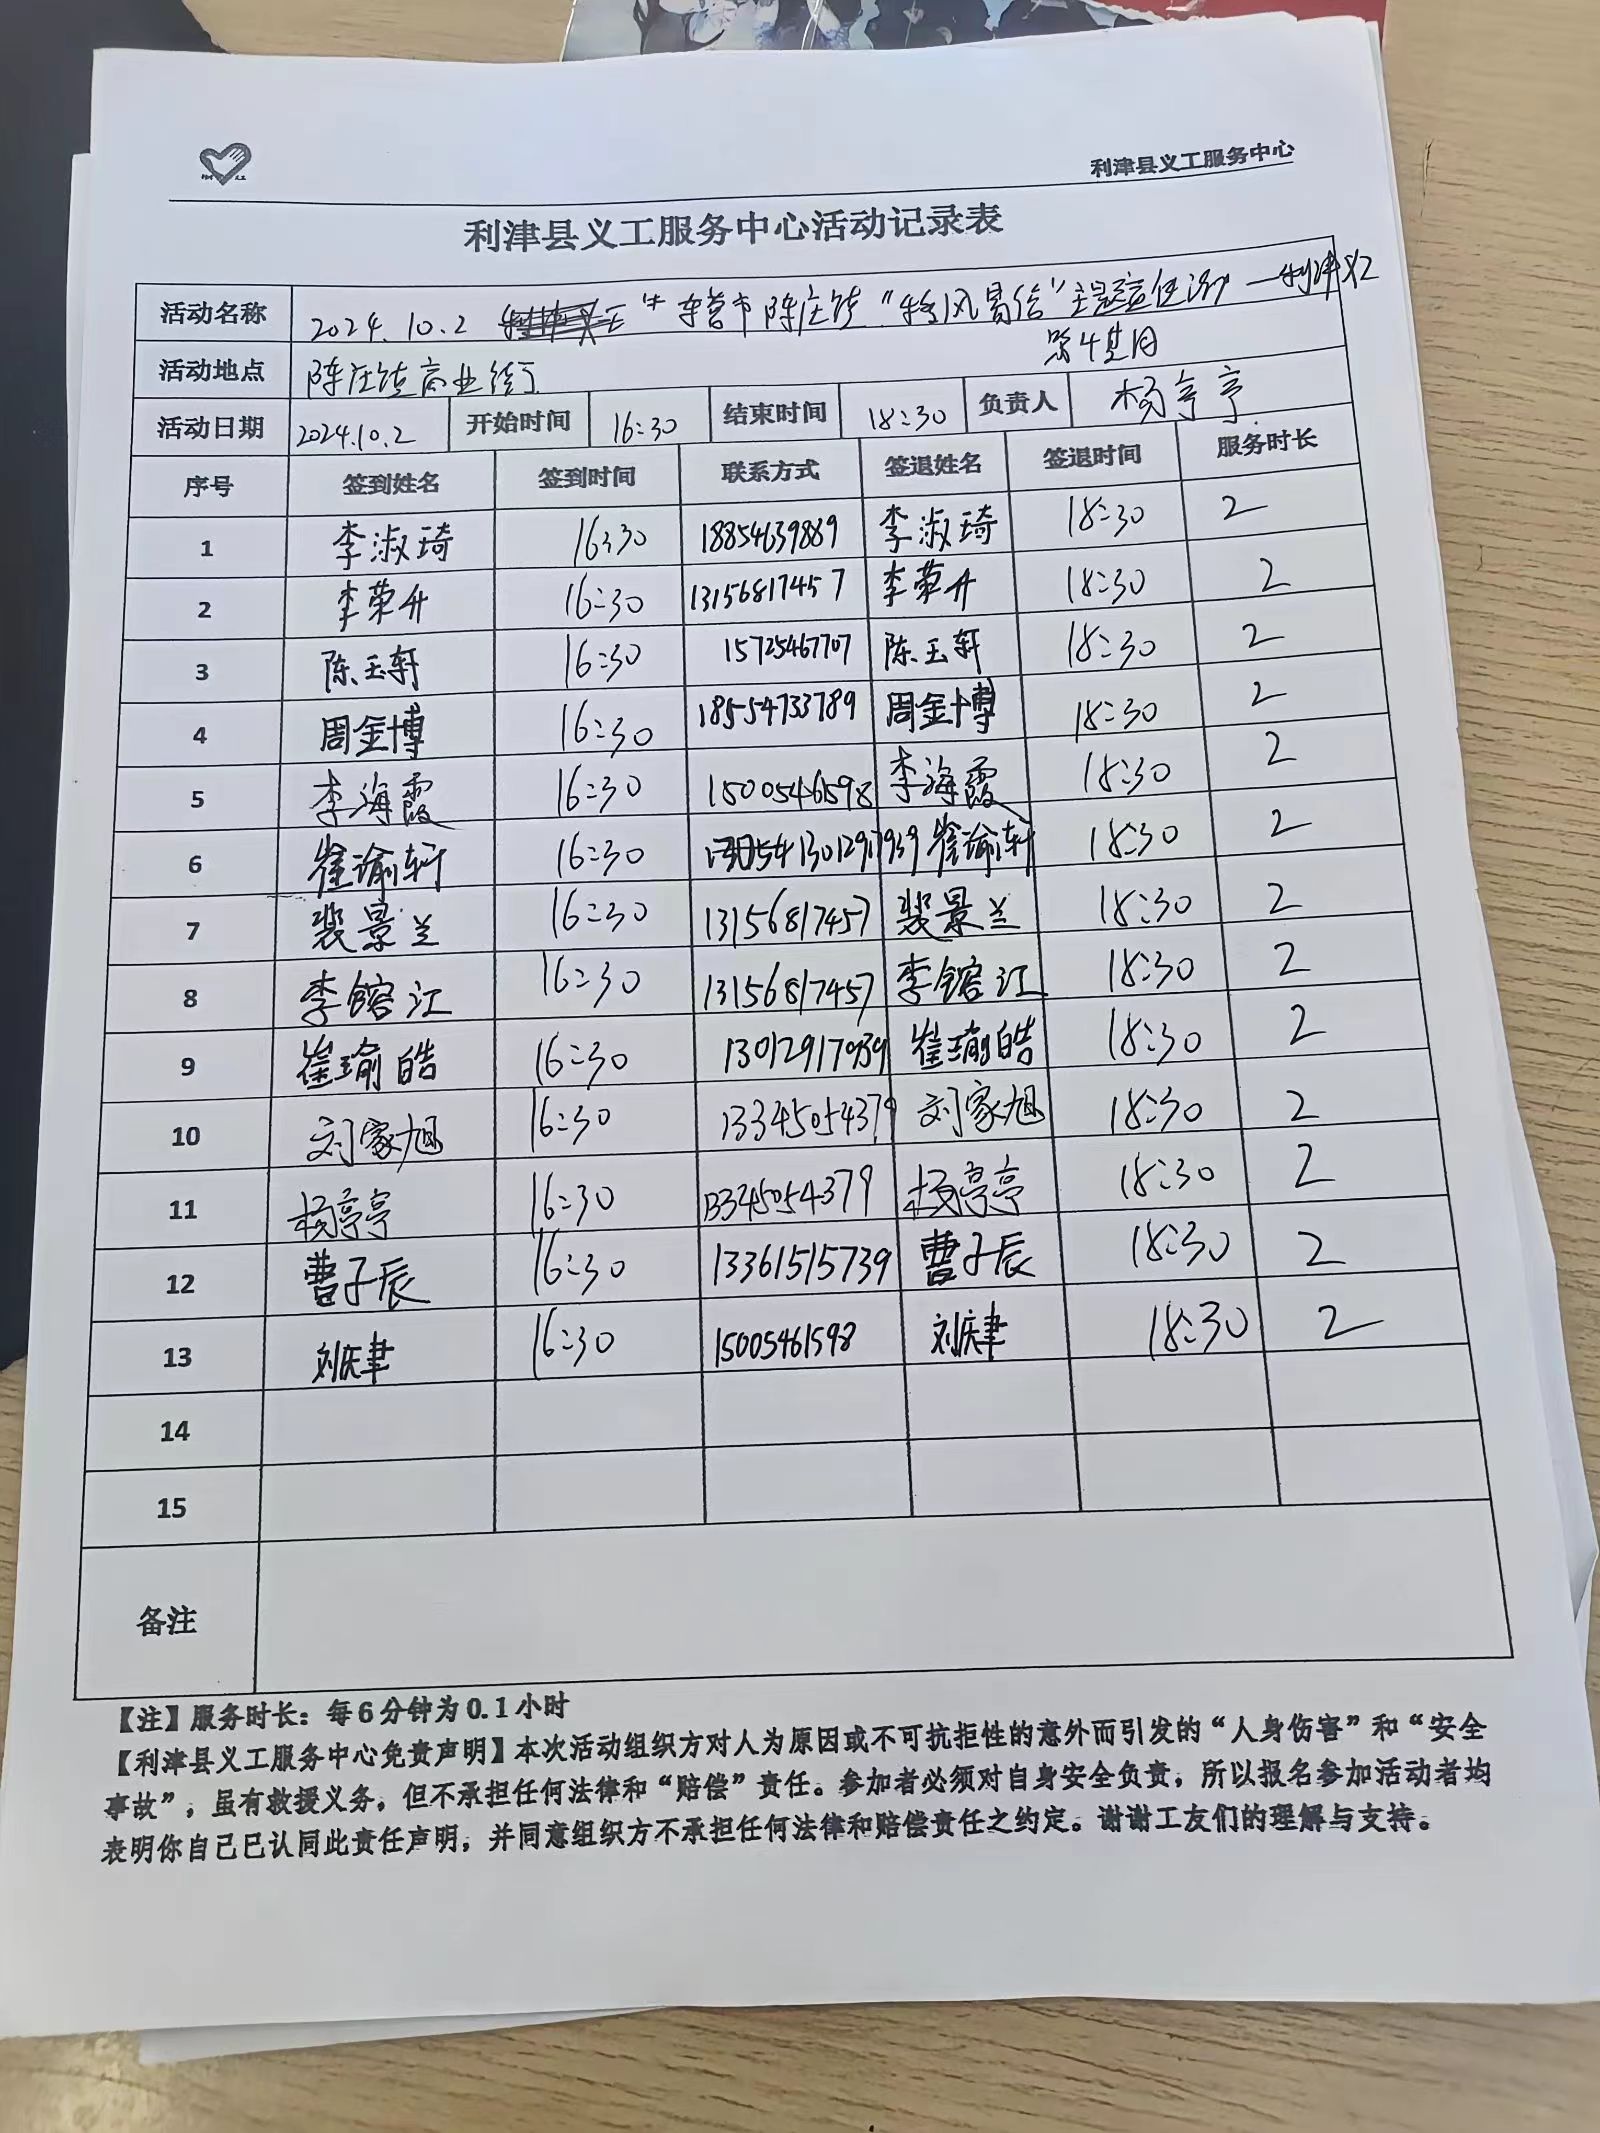 利津县义工服务中心
利津县义工服务中心活动记录表
活动名称 2024.10.2 东营市陈庄镇"移风易俗"主题宣传活动—利津义工
活动地点 陈庄镇商业街 第4笔团
活动日期 2024.10.2 开始时间 16:30 结束时间 18:30 负责人 杨亭亭
序号 签到姓名 签到时间 联系方式 签退姓名 签退时间 服务时长
1 李淑琦 16:30 18854639889 李淑琦 18:30 2
2 李荣升 16:30 13156817457 李荣升 18:30 2
3 陈玉轩 16:30 15725467707 陈玉轩 18:30 2
4 周金博 16:30 18554733789 周金博 18:30 2
5 李海霞 16:30 15005461598 李海霞 18:30 2
6 崔瑜轩 16:30 13012917939 崔瑜轩 18:30 2
7 裴景兰 16:30 13156817457 裴景兰 18:30 2
8 李镕江 16:30 13156817457 李镕江 18:30 2
9 崔瑜皓 16:30 13012917939 崔瑜皓 18:30 2
10 刘家旭 16:30 13345054379 刘家旭 18:30 2
11 杨亭亭 16:30 13345054379 杨亭亭 18:30 2
12 曹子辰 16:30 13361515739 曹子辰 18:30 2
13 刘庆聿 16:30 15005461598 刘庆聿 18:30 2
14
15
备注
【注】服务时长：每6分钟为0.1小时
【利津县义工服务中心免责声明】本次活动组织方对人为原因或不可抗拒性的意外而引发的“人身伤害”和“安全
事故”，虽有救援义务，但不承担任何法律和“赔偿”责任。参加者必须对自身安全负责，所以报名参加活动者均
表明你自己已认同此责任声明，并同意组织方不承担任何法律和赔偿责任之约定。谢谢工友们的理解与支持。